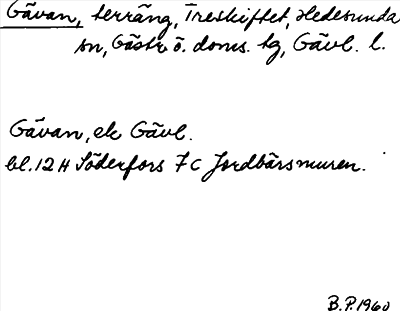 Gävan, terräng, Treskiftet, Hedesunda
sn, Gästr ö. doms. tg, Gävl. l.
Gävan, ek Gävl.
bl. 12 H Söderfors 7 C Jordbärsmuren.
B.P. 1960